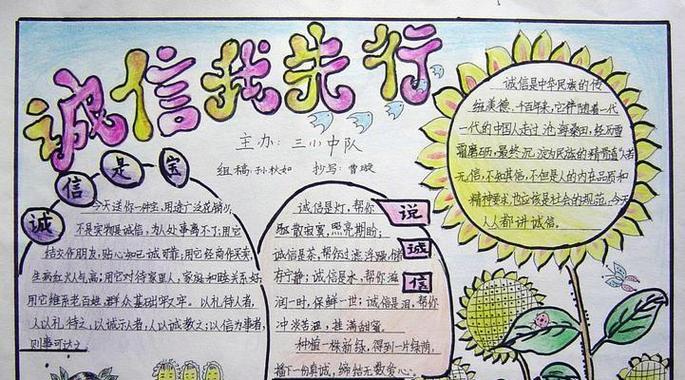 诚信我先行
主办：三小中队
组稿：孙秋如 抄写：曹璇
诚信是宝
今天送你一种宝，用途广泛花销少，
不是实物是诚信，为人处事离不了；用它
结交作朋友，贴心知己诚可靠；用它经商作买卖，
生病红火人气高；用它对待家里人，家庭和睦关系好；
用它维系老百姓，群众基础牢又牢。以礼待人者，
人以礼待之，以诚示人者，人以诚教之；以信为事者，
则事可达之
说诚信
诚信是灯，帮你
驱散寂寞，照亮期盼；
诚信是茶，帮你过滤浮躁，储
存宁静；诚信是水，帮你滋
润一时，保鲜一世；诚信是泪，帮你
冲淡苦涩，挂满甜蜜。
种植一株新绿，得到一片绿荫，
播下一份真诚，缔结无数爱心。
诚信是中华民族的传
统美德，千百年来，它伴随着一代
一代的中国人走过沧海桑田，经历雪
霜磨砺，最终沉淀为民族的精髓道“人者
无信，不知其可，不但是人的内在品质和
精神要求，也应该是社会的规范。今天
人人都讲诚信。